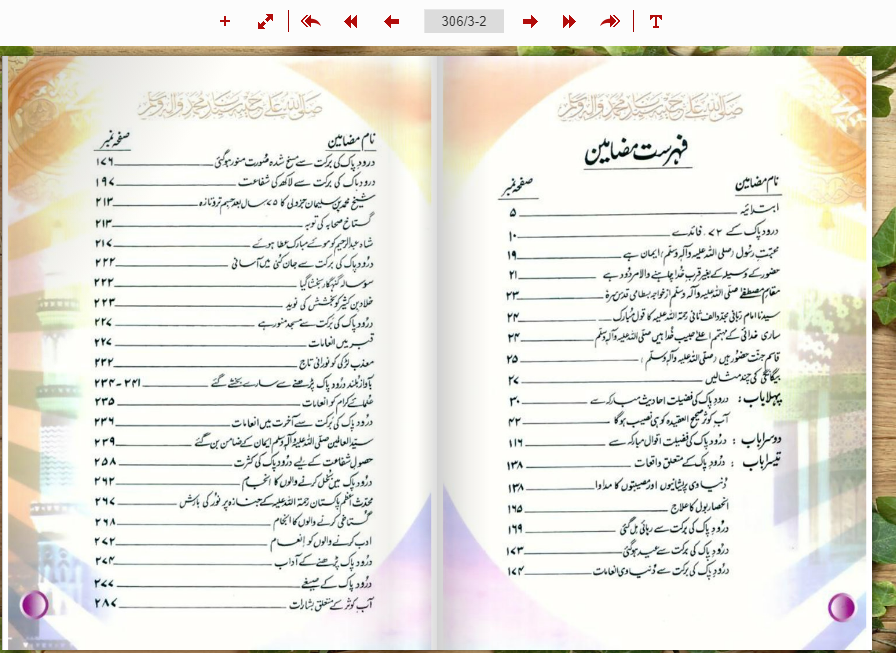 306/3-2
T
صلی اللہ علیٰ حبیبہ سیدنا محمد وآلہ وسلم
فہرست مضامین
نام مضامین صفحہ نمبر
ابتدائیہ ۵
درود پاک کے ۷۲ فائدے ۱۰
محبّتِ رسُول (صلی اللہ علیہ وآلہ وسلم) ایمان ہے ۱۹
حضور کے وسیلہ کے بغیر قربِ خُدا چاہنے والا مردود ہے ۲۱
مقامِ مصطفےٰ صلی اللہ علیہ وآلہ وسلم از خواجہ بسطامی قدس سرہٗ ۲۳
سیدنا امام ربّانی مجدد الف ثانی رحمۃ اللہ علیہ کا قول مُبارک ۲۴
ساری خدائی کے مہتمم اعلےٰ حبیبِ خُدا ہیں صلی اللہ علیہ وآلہ وسلم ۲۴
قاسمِ جنّت حضُور ہیں (صلی اللہ علیہ وآلہ وسلم) ۲۵
بیگانگی کی چند مثالیں ۲۷
پہلا باب : درود پاک کی فضیلت احادیث مبارکہ سے ۳۰
آب کوثر صحیح العقیدہ کو ہی نصیب ہوگا ۴۲
دوسرا باب : درُود پاک کی فضیلت اقوال مبارکہ سے ۱۱۶
تیسرا باب : درُودِ پاک کے متعلق واقعات ۱۳۸
دُنیاوی پریشانیوں اور مصیبتوں کا مداوا ۱۳۸
انحصار بول کا علاج ۱۶۵
درُودِ پاک کی برکت سے رہائی مل گئی ۱۶۹
درُودِ پاک کی برکت سے عید ہوگئی ۱۷۳
درُودِ پاک کی برکت سے دُنیاوی انعامات ۱۷۴
صلی اللہ علیٰ حبیبہ سیدنا محمد وآلہ وسلم
نام مضامین صفحہ نمبر
درود پاک کی برکت سے مسخ شدہ صُورت منور ہوگئی ۱۷۶
درود پاک کی برکت سے لاکھ کی شفاعت ۱۹۷
شیخ محمد بن سلیمان جزولی کا ۷۵ سال بعد جسم تروتازہ ۲۱۳
گستاخِ صحابہ کی توبہ ۲۱۳
شاہ عبدالرحیم کو موئے مبارک عطا ہوئے ۲۱۷
درُودِ پاک کی برکت سے جان کنی میں آسانی ۲۲۲
سو سالہ گنہگار بخشا گیا ۲۲۲
خلاد بن کثیر کو بخشش کی نوید ۲۲۳
درُود پاک کی برکت سے مسجد منور ہے ۲۲۷
قبر میں انعامات ۲۲۷
معذب لڑکی کو نورانی تاج ۲۳۲
بآواز بلند درُود پاک پڑھنے سے سارے بخشے گئے ۲۴۱ - ۲۳۴
علمائے کرام کو انعامات ۲۳۵
درُود پاک کی برکت سے آخرت میں انعامات ۲۳۶
سیّد العالمین صلی اللہ علیہ وآلہ وسلم ایمان کے ضامن بن گئے ۲۳۹
حصولِ شفاعت کے لیے درُود پاک کی کثرت ۲۵۸
درُود پاک میں بُخل کرنے والوں کا انجام ۲۶۲
محدّث اعظم پاکستان رحمۃ اللہ علیہ کے جنازہ پر نُور کی بارش ۲۶۷
گستاخی کرنے والوں کا انجام ۲۶۸
ادب کرنے والوں کو انعام ۲۷۲
درُود پاک پڑھنے کے آداب ۲۷۴
درُود پاک کے صیغے ۲۷۷
آب کوثر کے متعلق بشارات ۲۸۷